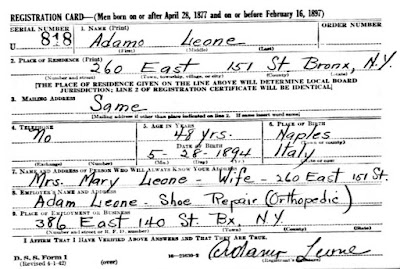 REGISTRATION CARD—(Men born on or after April 28, 1877 and on or before February 16, 1897)
SERIAL NUMBER 1. NAME (Print) ORDER NUMBER
U 818 Adamo Leone
(First) (Middle) (Last)
2. PLACE OF RESIDENCE (Print)
260 East 151 St Bronx, N.Y.
(Number and street) (Town, township, village, or city) (County) (State)
[THE PLACE OF RESIDENCE GIVEN ON THE LINE ABOVE WILL DETERMINE LOCAL BOARD
JURISDICTION; LINE 2 OF REGISTRATION CERTIFICATE WILL BE IDENTICAL]
3. MAILING ADDRESS
Same
[Mailing address if other than place indicated on line 2. If same insert word same]
4. TELEPHONE 5. AGE IN YEARS 6. PLACE OF BIRTH
No 48 yrs. Naples
DATE OF BIRTH (Town or county)
5- 28- 1894 Italy
(Exchange) (Number) (Mo.) (Day) (Yr.) (State or country)
7. NAME AND ADDRESS OF PERSON WHO WILL ALWAYS KNOW YOUR ADDRESS
Mrs. Mary Leone - Wife - 260 East 151 St.
8. EMPLOYER'S NAME AND ADDRESS
Adam Leone - Shoe Repair (Orthopedic)
9. PLACE OF EMPLOYMENT OR BUSINESS
386 East 140 St. Bx, N.Y.
(Number and street or R. F. D. number) (Town) (County) (State)
I AFFIRM THAT I HAVE VERIFIED ABOVE ANSWERS AND THAT THEY ARE TRUE.
D. S. S. Form 1
(Revised 4-1-42) (over) Adamo Leone